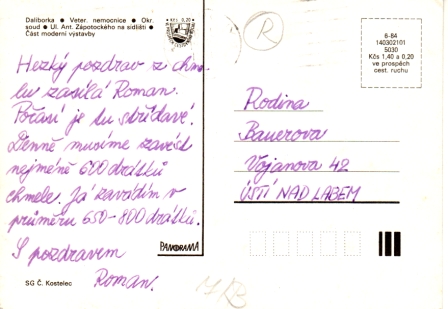 Daliborka ● Veter. nemocnice ● Okr.
soud ● Ul. Ant. Zápotockého na sídlišti ●
Část moderní výstavby
Kčs 0,20
Hezký pozdrav z chme
lu zasílá Roman.
Počasí je tu střídavé.
Denně musíme zavést
nejméně 600 drátků
chmele. Já zavádím v
průměru 650-800 drátků.
S pozdravem
Roman.
PANORAMA
SG Č. Kostelec
R
6-84
140302101
5030
Kčs 1,40 a 0,20
ve prospěch
cest. ruchu
Rodina
Bauerova
Vojanova 42
ÚSTÍ NAD LABEM